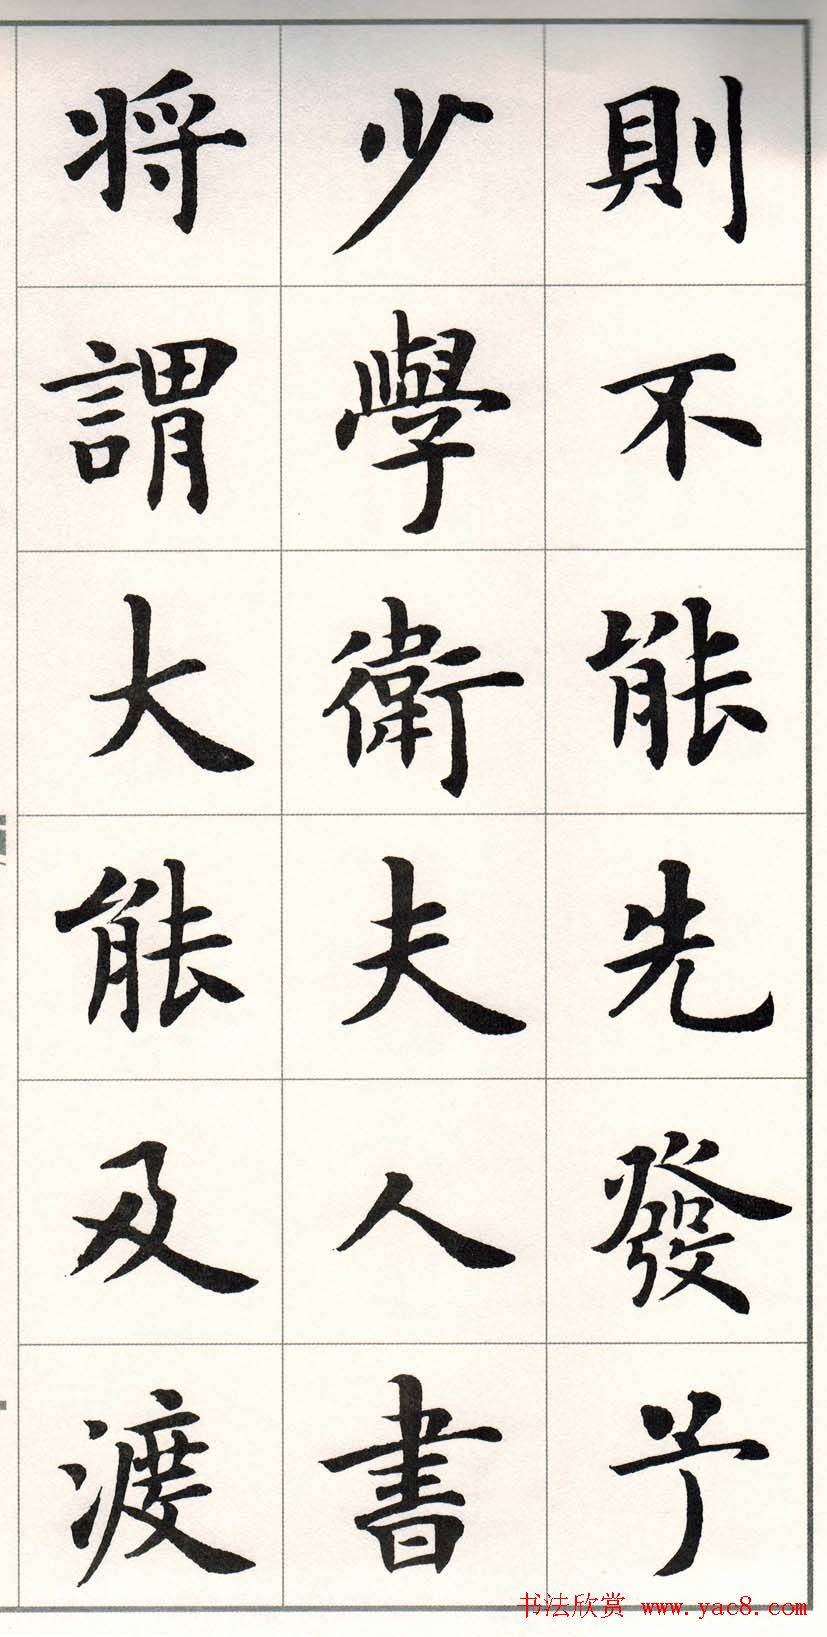 則不能先發予
少學衛夫人書
将謂大能及渡
书法欣赏 www.yac8.com